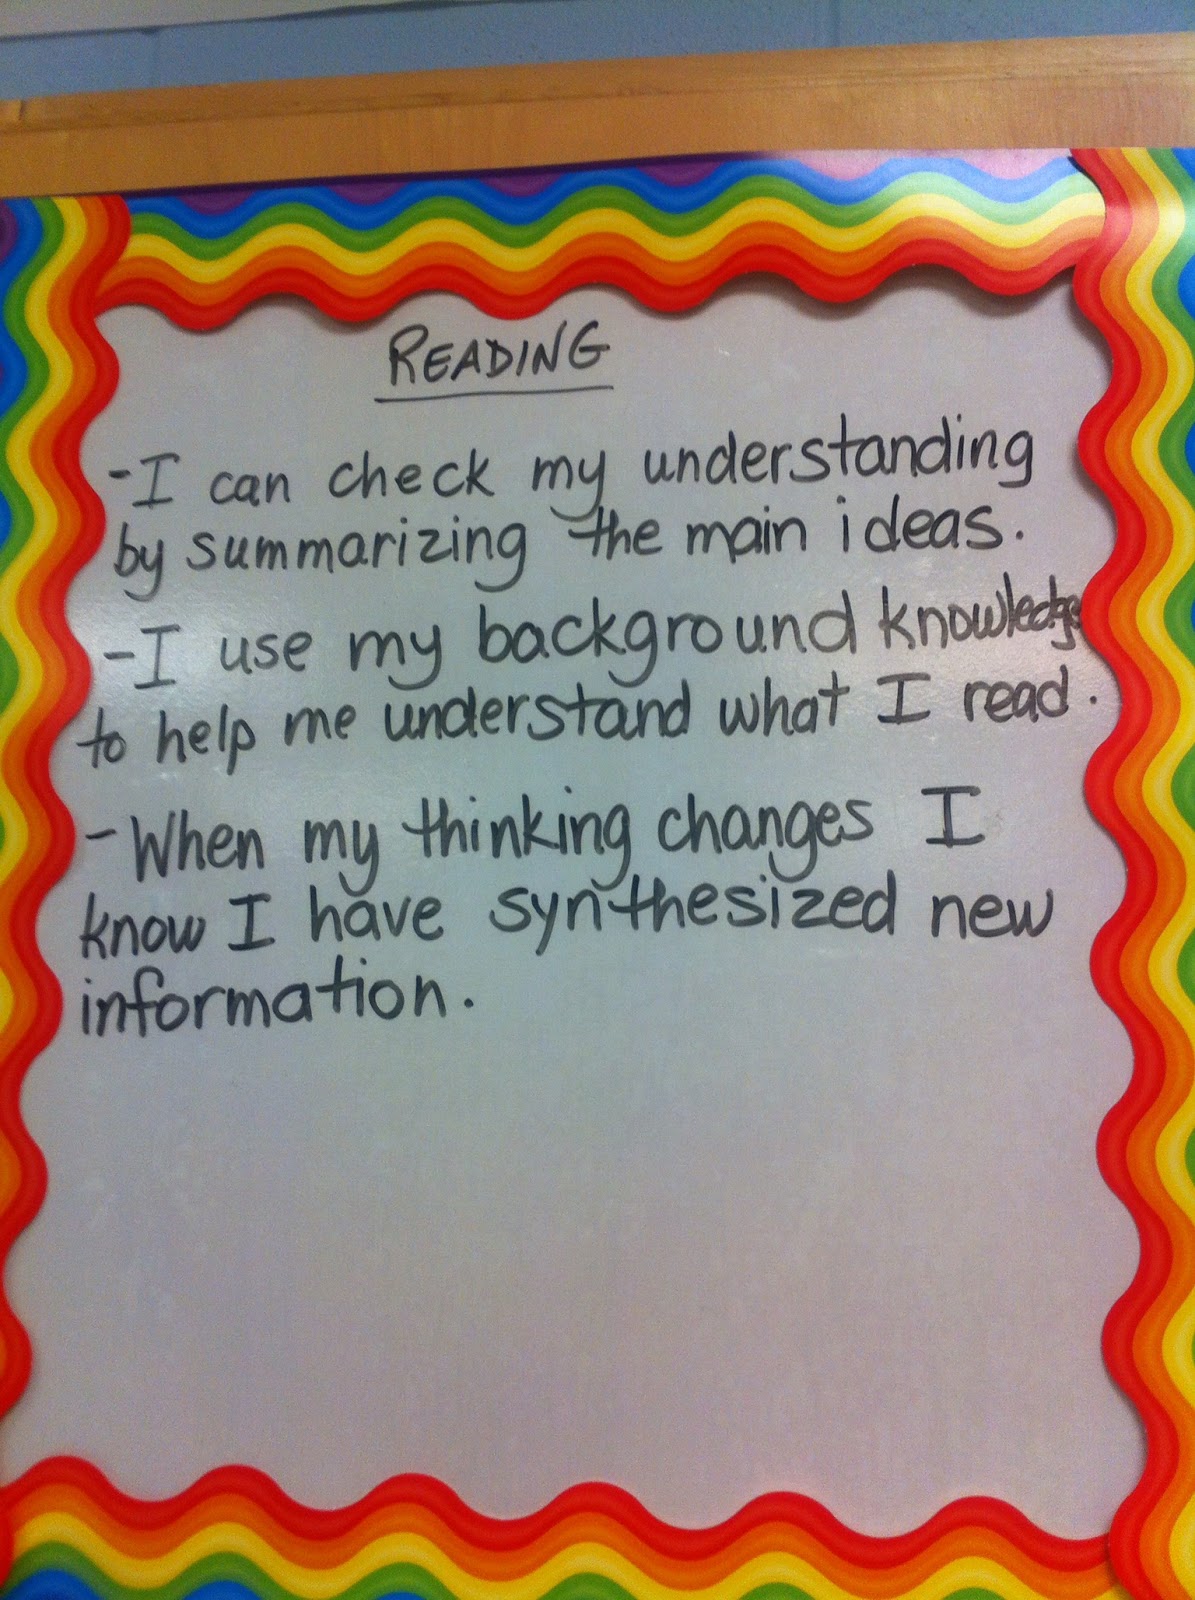 READING
-I can check my understanding
by summarizing the main ideas.
-I use my background knowledge
to help me understand what I read.
-When my thinking changes I
know I have synthesized new
information.